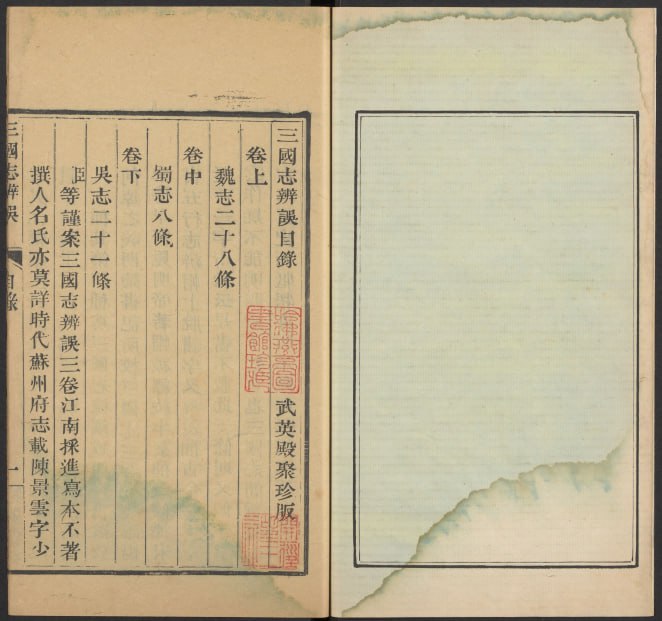 三國志辨誤目錄 武英殿聚珍版
卷上
魏志二十八條
卷中
蜀志八條
卷下
吳志二十一條
臣等謹案三國志辨誤三卷江南採進寫本不著
撰人名氏亦莫詳時代蘇州府志載陳景雲字少
三國志辨誤 目錄 一